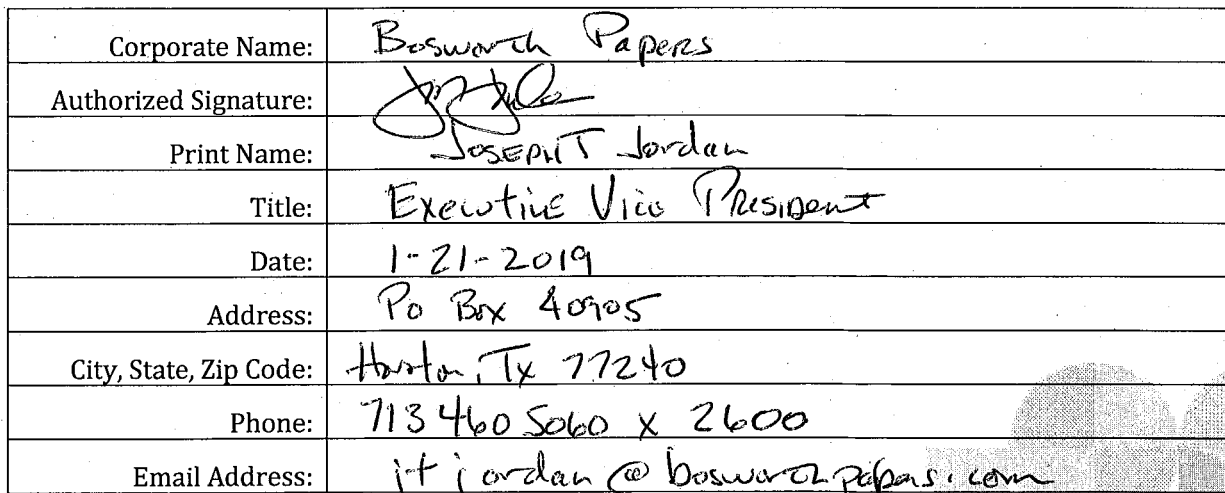 Corporate Name: Bosworth Papers
Authorized Signature:
Print Name: Joseph T Jordan
Title: Executive Vice President
Date: 1-21-2019
Address: Po Box 40905
City, State, Zip Code: Houston, Tx 77240
Phone: 713 460 5060 x 2600
Email Address: jtjordan@bosworthpapers.com